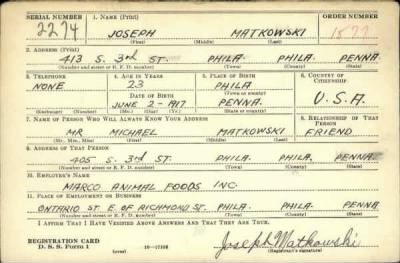 SERIAL NUMBER 1. NAME (Print) ORDER NUMBER
2274 JOSEPH MATKOWSKI 1577
(First) (Middle) (Last)
2. ADDRESS (Print)
413 S. 3rd ST. PHILA. PHILA. PENNA.
(Number and street or R. F. D. number) (Town) (County) (State)
3. TELEPHONE 4. AGE IN YEARS 5. PLACE OF BIRTH 6. COUNTRY OF CITIZENSHIP
NONE 23 PHILA
DATE OF BIRTH (Town or county)
JUNE 2-1917 PENNA. U.S.A.
(Exchange) (Number) (Mo.) (Day) (Yr.) (State or country)
7. NAME OF PERSON WHO WILL ALWAYS KNOW YOUR ADDRESS 8. RELATIONSHIP OF THAT PERSON
MR MICHAEL MATKOWSKI FRIEND
(Mr., Mrs., Miss) (First) (Middle) (Last)
9. ADDRESS OF THAT PERSON
405 S. 3rd ST. PHILA. PHILA. PENNA.
(Number and street or R. F. D. number) (Town) (County) (State)
10. EMPLOYER'S NAME
MARCO ANIMAL FOODS INC.
11. PLACE OF EMPLOYMENT OR BUSINESS
ONTARIO ST. E. OF RICHMOND ST. PHILA. PHILA. PENNA.
(Number and street or R. F. D. number) (Town) (County) (State)
I AFFIRM THAT I HAVE VERIFIED ABOVE ANSWERS AND THAT THEY ARE TRUE.
REGISTRATION CARD
D. S. S. Form 1 (over) 16—17105 Joseph Matkowski
(Registrant's signature)